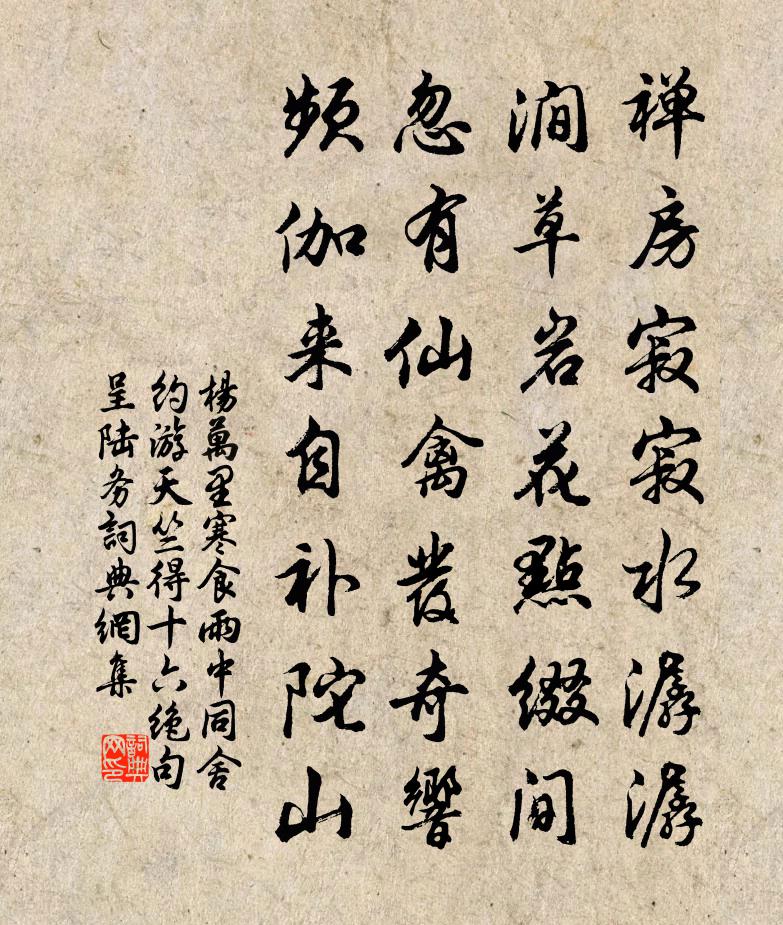 禅房寂寂水潺潺
澗草岩花點缀间
忽有仙禽發奇響
频伽来自补陀山
楊萬里寒食雨中同舍
约游天竺得十六绝句
呈陆务詞典網集
詞典网印